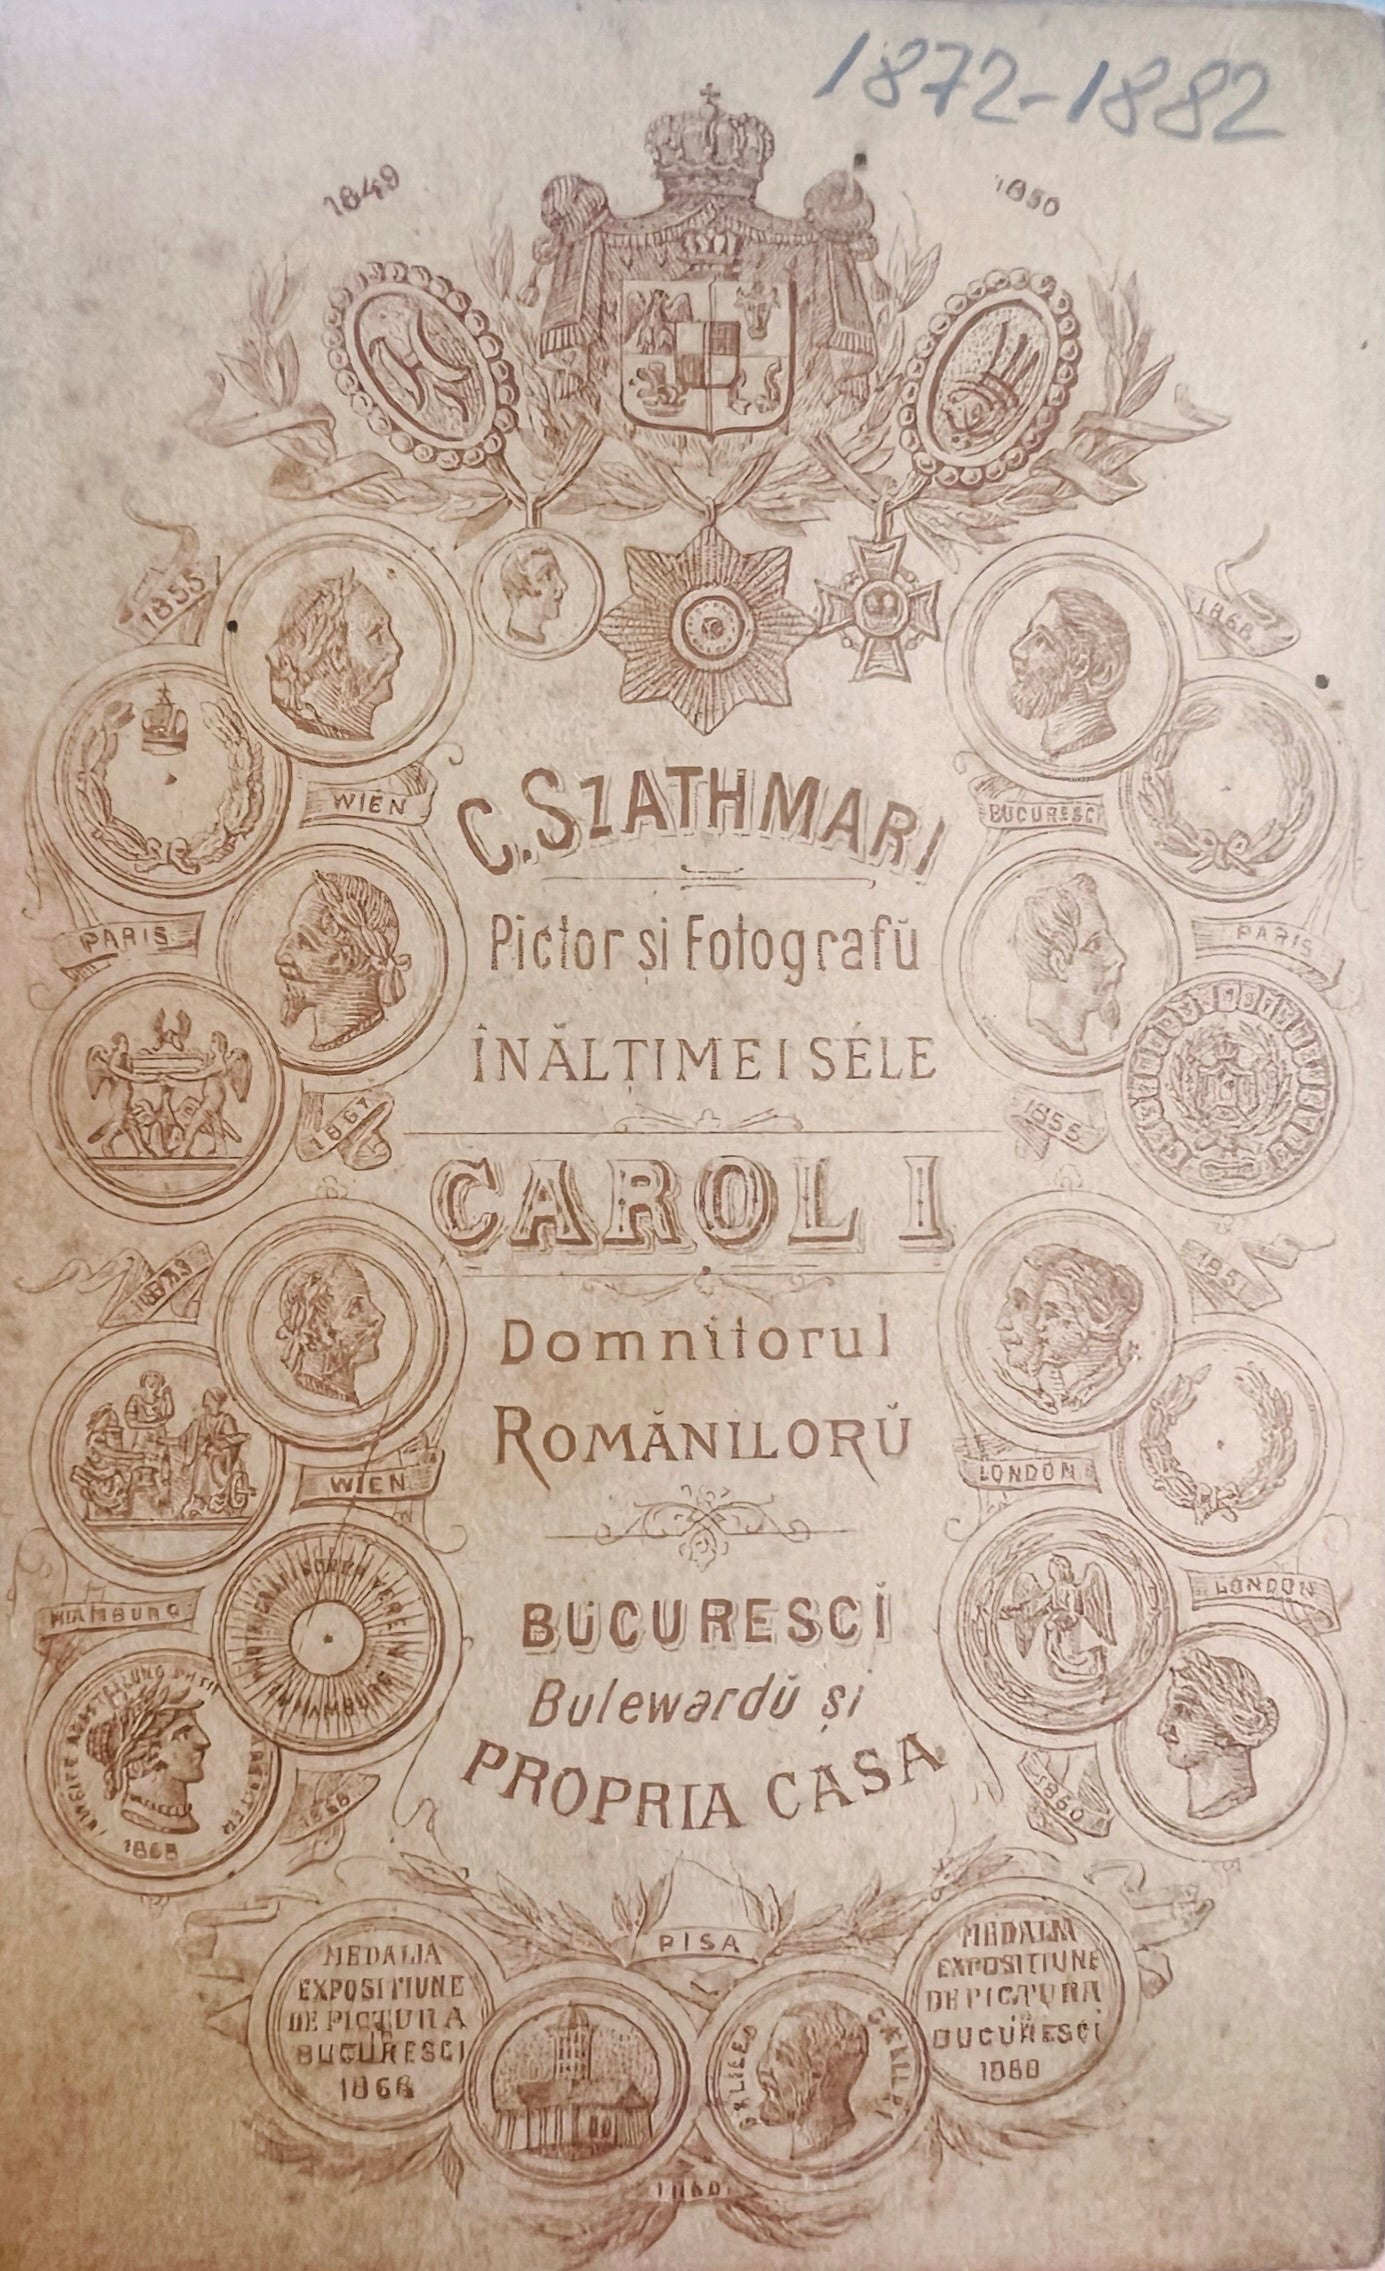 1872-1882
1849
1850
1855
1868
WIEN
BUCURESCI
C. SZATHMARI
PARIS
PARIS
Pictor si Fotografŭ
ÎNĂLȚIMEI SÉLE
1867
1855
CAROL I
1873
1851
Domnitorul
ROMĂNILORŬ
WIEN
LONDON
HAMBURG
LONDON
BUCURESCĬ
Bulewardŭ și
PROPRIA CASA
1868
1860
PISA
MEDALIA
EXPOSITIUNE
DE PICTURA
BUCURESCI
1868
MEDALIA
EXPOSITIUNE
DE PICTURA
BUCURESCI
GALILEO GALILEI
1860